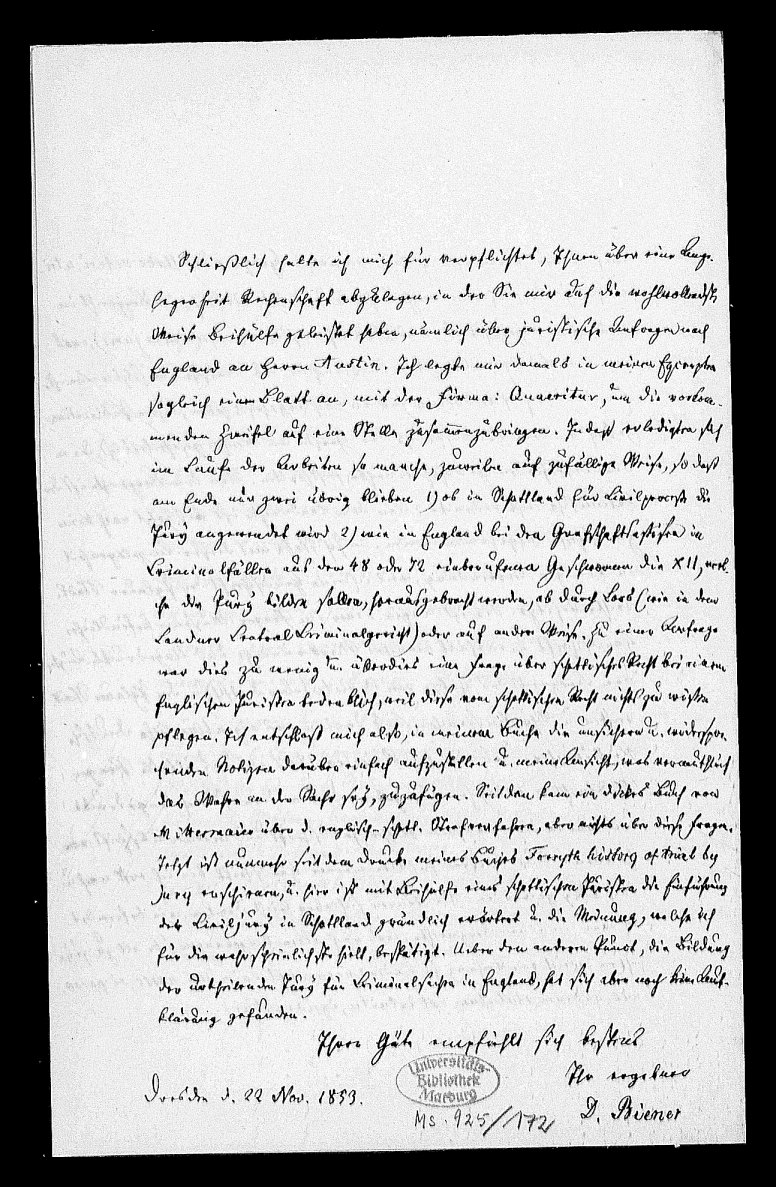 Schließlich halte ich mich für verpflichtet, Ihnen über eine Ange-
legenheit Rechenschaft abzulegen, in der Sie mir auf die wohlwollendste
Weise Beihülfe geleistet haben, nämlich über juristische Anfragen nach
England an Herrn Austin. Ich legte mir damals in meinen Excerpten
sogleich einen Blatt an, mit der Firma: Quaeritur, um die vorkom-
menden Zweifel auf eine Stelle zusammenzubringen. Indeß erledigten sich
im Laufe der Arbeiten so manche, zuweilen auf zufällige Weise, so daß
am Ende nur zwei übrig blieben 1) ob in Schottland für Civilprocesse die
Jury angewendet wird 2) wie in England bei den Grafschaftsassisen in
Criminalfällen aus den 48 oder 72 einberufenen Geschwornen die XII, wel-
che die Jury bilden sollen, herausgebracht werden, ob durch Loos (wie in dem
Londner Central Criminalgericht) oder auf andere Weise. Zu einer Anfrage
war dies zu wenig u. überdies eine Frage über schottisches Recht bei einem
Englischen Juristen bedenklich, weil diese vom schottischen Recht nichts zu wissen
pflegen. Ich entschloß mich also, in meinem Buche die unsichern u. widerspre-
chenden Notizen darüber einfach aufzustellen u. meine Ansicht, was vermuthlich
das Wahre an der Sache sey, zuzufügen. Seitdem kam ein dickes Buch von
Mittermaier über d. englisch-schott. Strafverfahren, aber nichts über diese Fragen.
Jetzt ist nunmehr seit dem Drucke meines Buches Forsyth history of trial by
Jury erschienen, u. hier ist mit Beihülfe eines schottischen Juristen die Einführung
der Civiljury in Schottland gründlich erörtert u. die Meinung, welche ich
für die wahrscheinlichste hielt, bestätigt. Ueber den anderen Punct, die Bildung
der urtheilenden Jury für Criminalsachen in England, hat sich aber noch keine Auf-
klärung gefunden.
Ihrer Güte empfiehlt sich bestens
Ihr ergebner
Dresden d. 22 Nov. 1853.
D. Biener
Universitäts-
Bibliothek
Marburg
Ms. 925/172